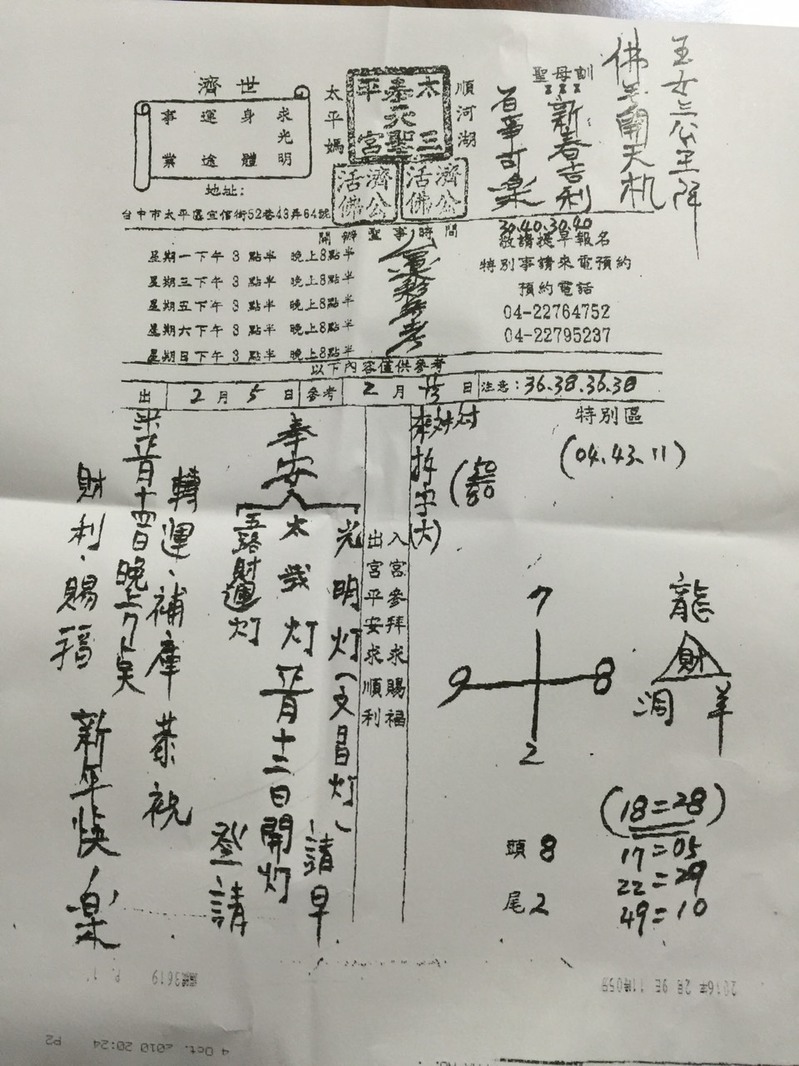 玉女三公主降
佛手南天机
聖母訓
新春吉利
百事可樂
順河湖
太三奉天聖平宮
太平媽
濟公活佛
濟公活佛
濟世
求光明
身體
運途
事業
地址:
台中市太平區宜信街52巷43弄64號
開辦聖事時間
星期一下午 3 點半 晚上8點半
星期三下午 3 點半 晚上8點半
星期五下午 3 點半 晚上8點半
星期六下午 3 點半 晚上8點半
星期日下午 3 點半 晚上8點半
30.40.30.40
敬請提早報名
特別事請來電預約
預約電話
04-22764752
04-22795237
以下內容僅供參考
出 2 月 5 日 參考 2 月 日 注意:36.38.36.38
特別區
(04.43.11)
7
9 8
2
龍
財
洞 羊
(18=28)
17=05
22=29
49=10
頭 8
尾 2
入宮參拜求賜福
出宮平安求順利
奉安
光明灯(文昌灯)
太歲灯
五路財運灯
正月十二日開灯
請早
登請
正月十四日晚上
轉運、補庫
財利、賜福
恭祝
新年快樂
3619 P. 1
2016年 2月 9日 11時05分
4 Oct. 2010 20:24 P2